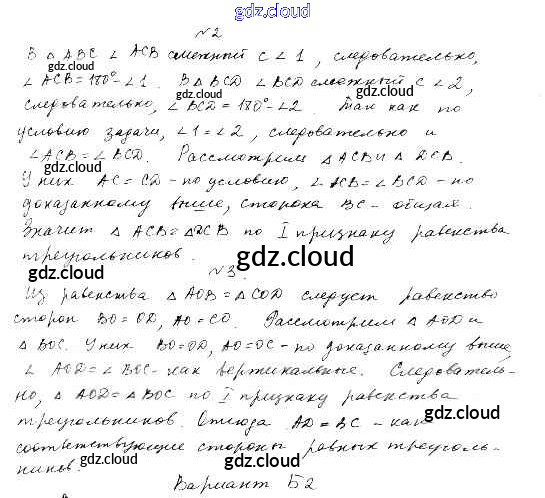 gdz.cloud
№2
В △ АВС ∠ АСВ смежный с ∠1, следовательно,
∠ АСВ = 180° - ∠1. В △ BCD ∠ BCD смежный с ∠2,
gdz.cloud gdz.cloud
следовательно, ∠ BCD = 180° - ∠2. Так как по
условию задачи, ∠1 = ∠2, следовательно и
∠ACB = ∠ BCD. Рассмотрим △ ACB и △ DCB.
gdz.cloud
У них AC = CD - по условию, ∠ ACB = ∠ BCD - по
доказанному выше, сторона BC - общая.
gdz.cloud
Значит △ ACB = △DCB по I признаку равенства
треугольников.
gdz.cloud gdz.cloud
№3.
Из равенства △ AOB = △ COD следует равенство
сторон BO = OD, AO = CO. Рассмотрим △ AOD и
△ BOC. У них BO = OD, AO = OC - по доказанному выше,
gdz.cloud gdz.cloud
∠ AOD = ∠ BOC - как вертикальные. Следователь-
но, △ AOD = △ BOC по I признаку равенства
треугольников. Отсюда AD = BC - как
gdz.cloud gdz.cloud
соответствующие стороны равных треуголь-
ников.
gdz.cloud
Вариант Б2